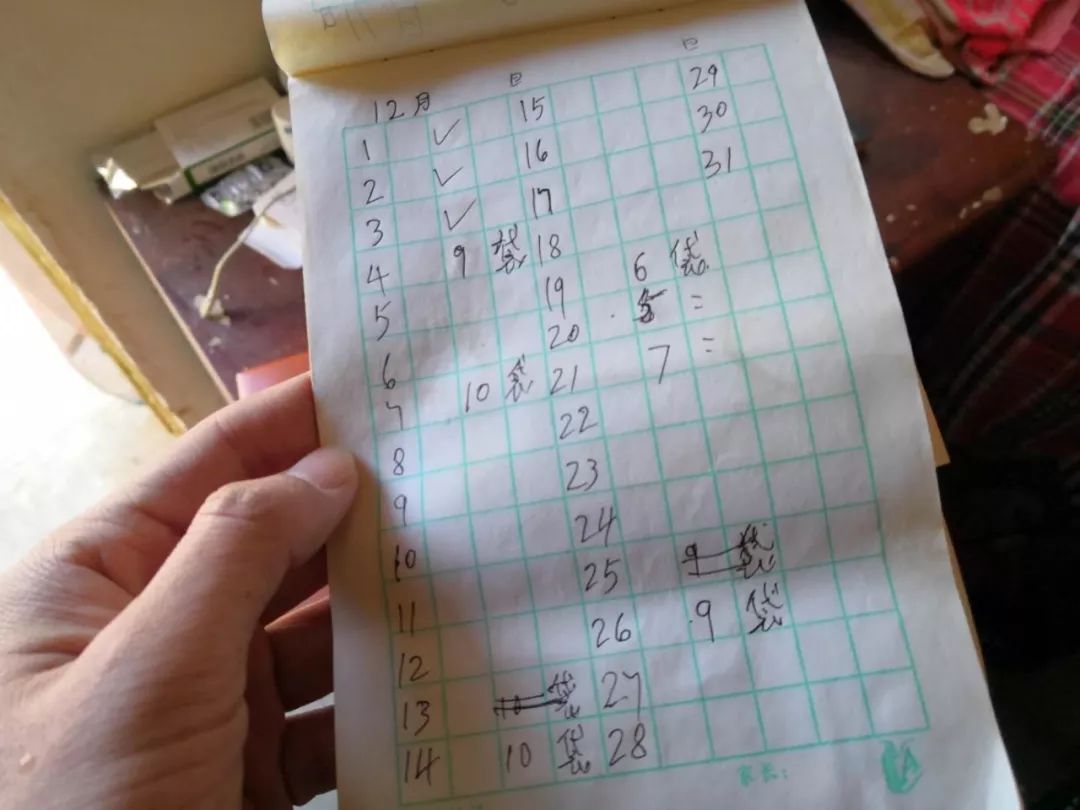 12月 日 日
1 ✓ 15 29
2 ✓ 16 30
3 ✓ 17 31
4 9袋 18
5 19 6袋
6 20 5 =
7 10袋 21 7 =
8 22
9 23
10 24
11 25 9袋
12 26 9袋
13 10袋 27
14 10袋 28
家长: